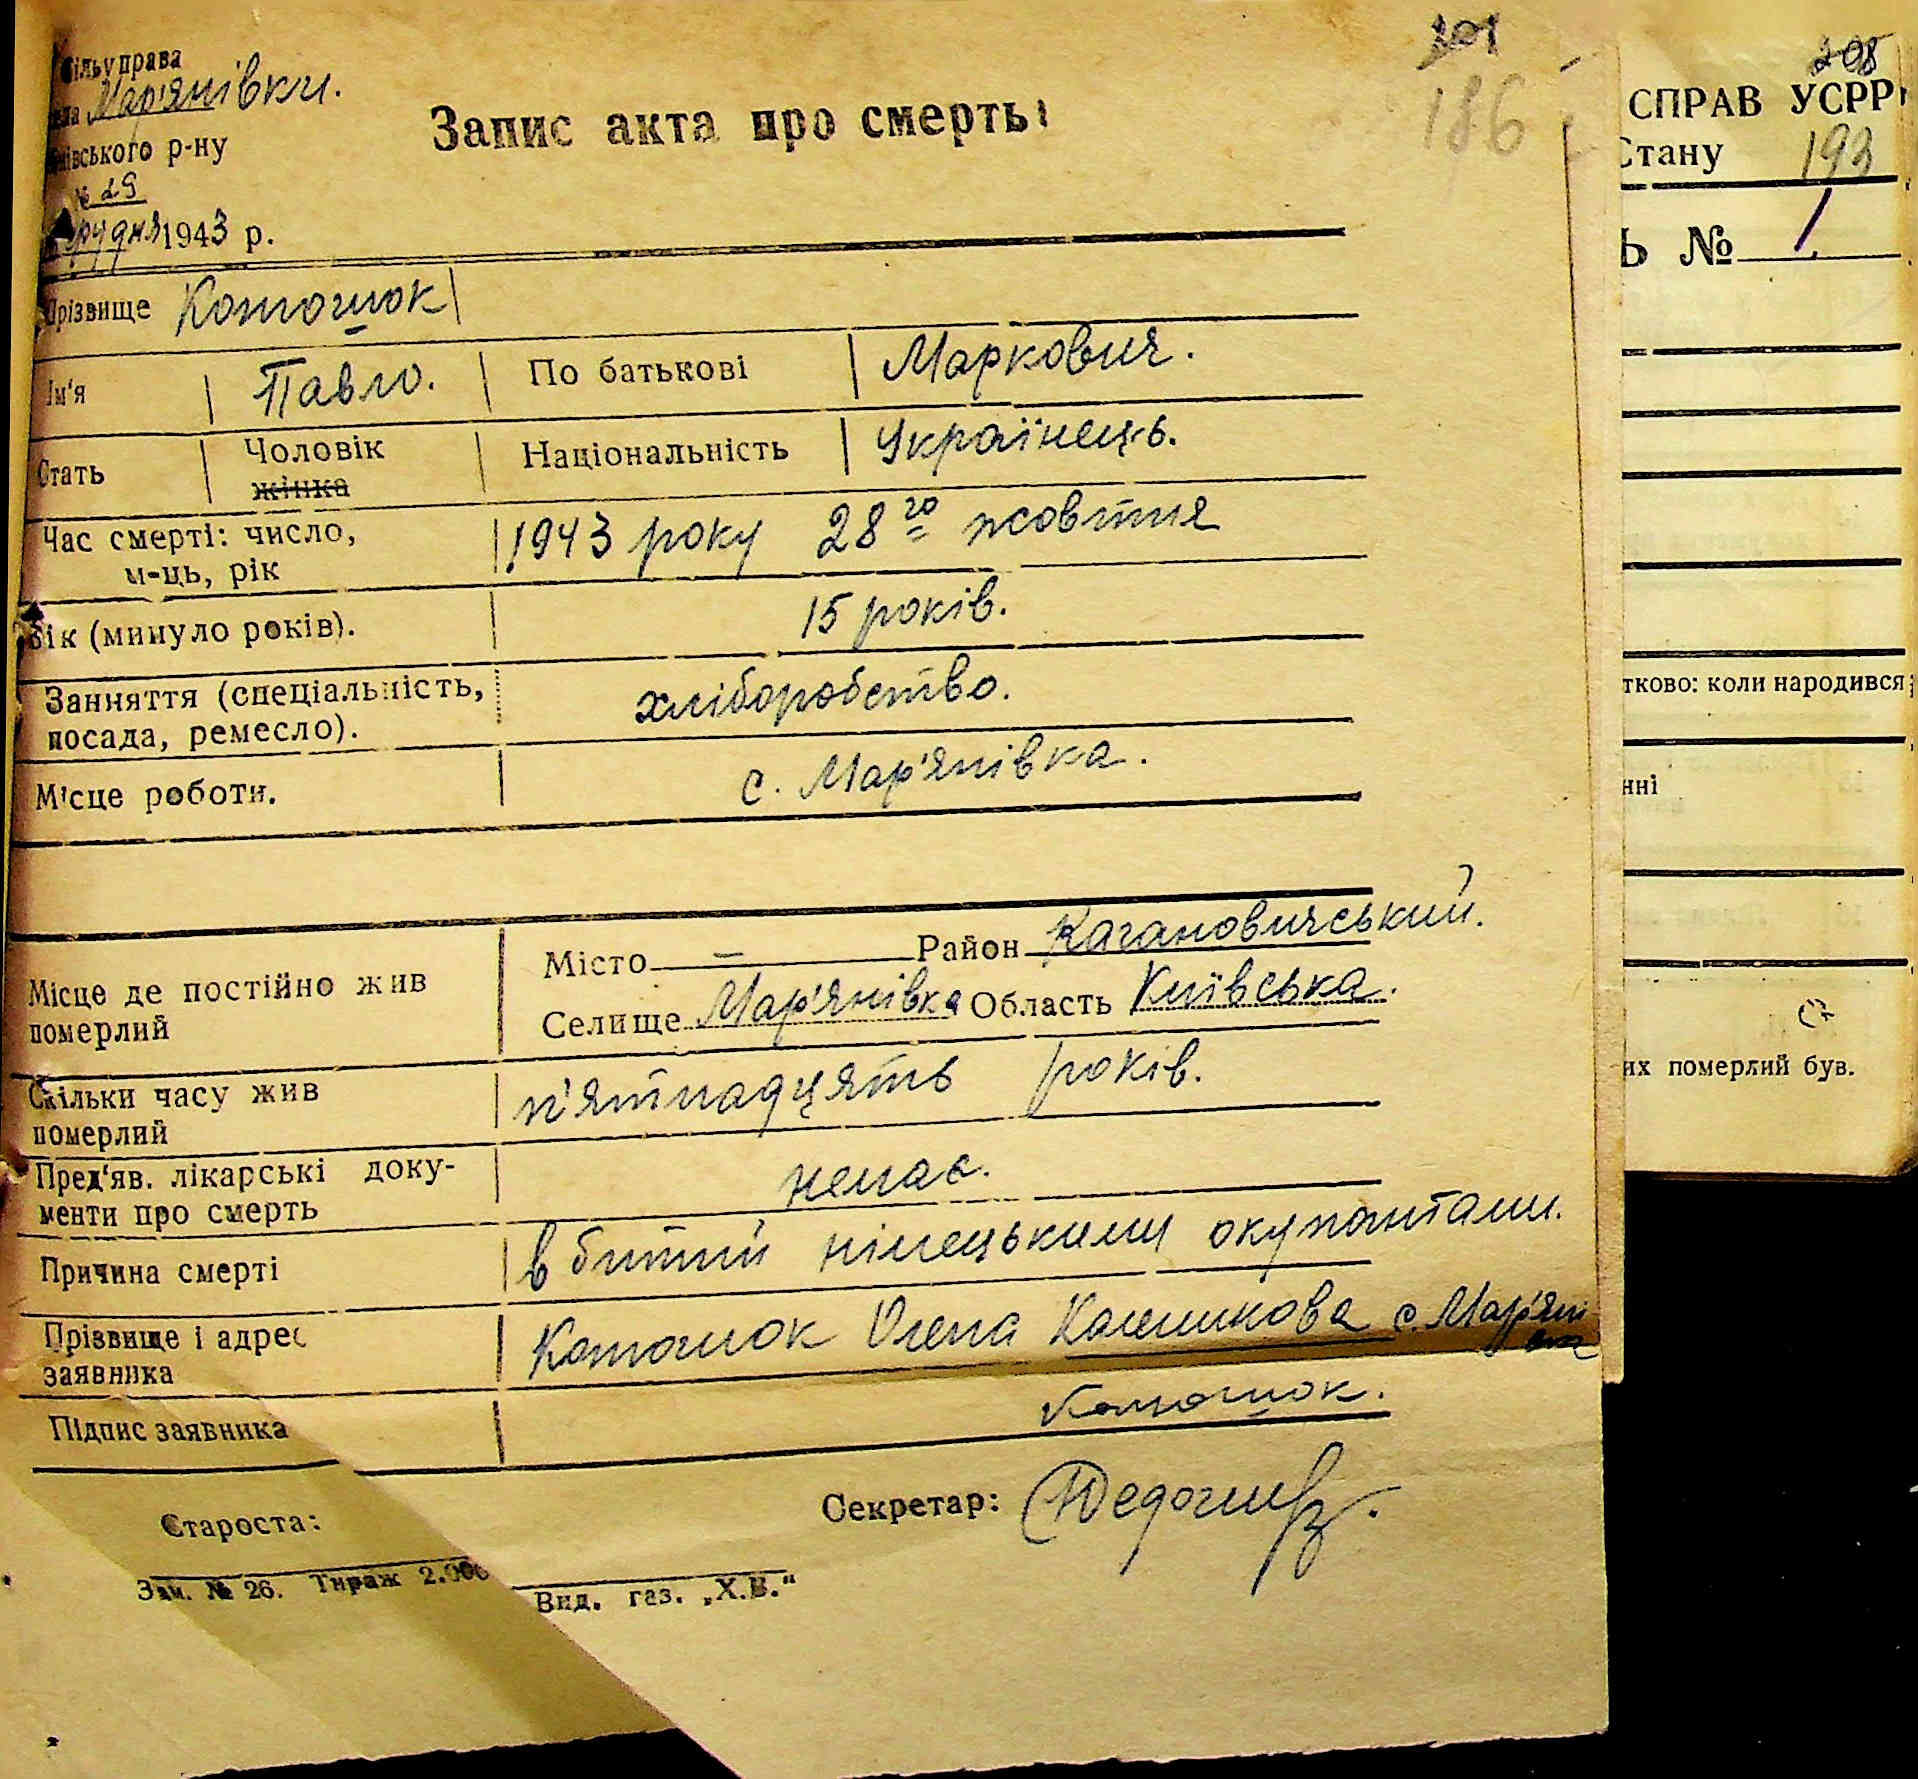 Сільуправа
201
села Мар'янівки.
186
Запис акта про смерть
р-ну
№ 29
грудня 1943 р.
Прізвище Котошок
Ім'я Павло. По батькові Маркович.
Стать Чоловік жінка Національність Українець.
Час смерті: число, м-ць, рік 1943 року 28го жовтня
Вік (минуло років). 15 років.
Заняття (спеціальність, посада, ремесло). хліборобство.
М'сце роботи. с. Мар'янівка.
Місто — Район Кагановичський.
Місце де постійно жив померлий
Селище Мар'янівка Область Київська.
Скільки часу жив померлий п'ятнадцять років.
Пред'яв. лікарські доку-
менти про смерть немає.
Причина смерті вбитий німецькими окупантами.
Прізвище і адрес заявника Котошок Олена с. Мар'янівка
Підпис заявника Котошок.
Староста: Секретар:
Зам. № 26. Тираж 2.000 Вид. газ. „Х.В.“
208
СПРАВ УСРР
Стану 193
Ь № 1
тково: коли народився
нні
их померлий був.